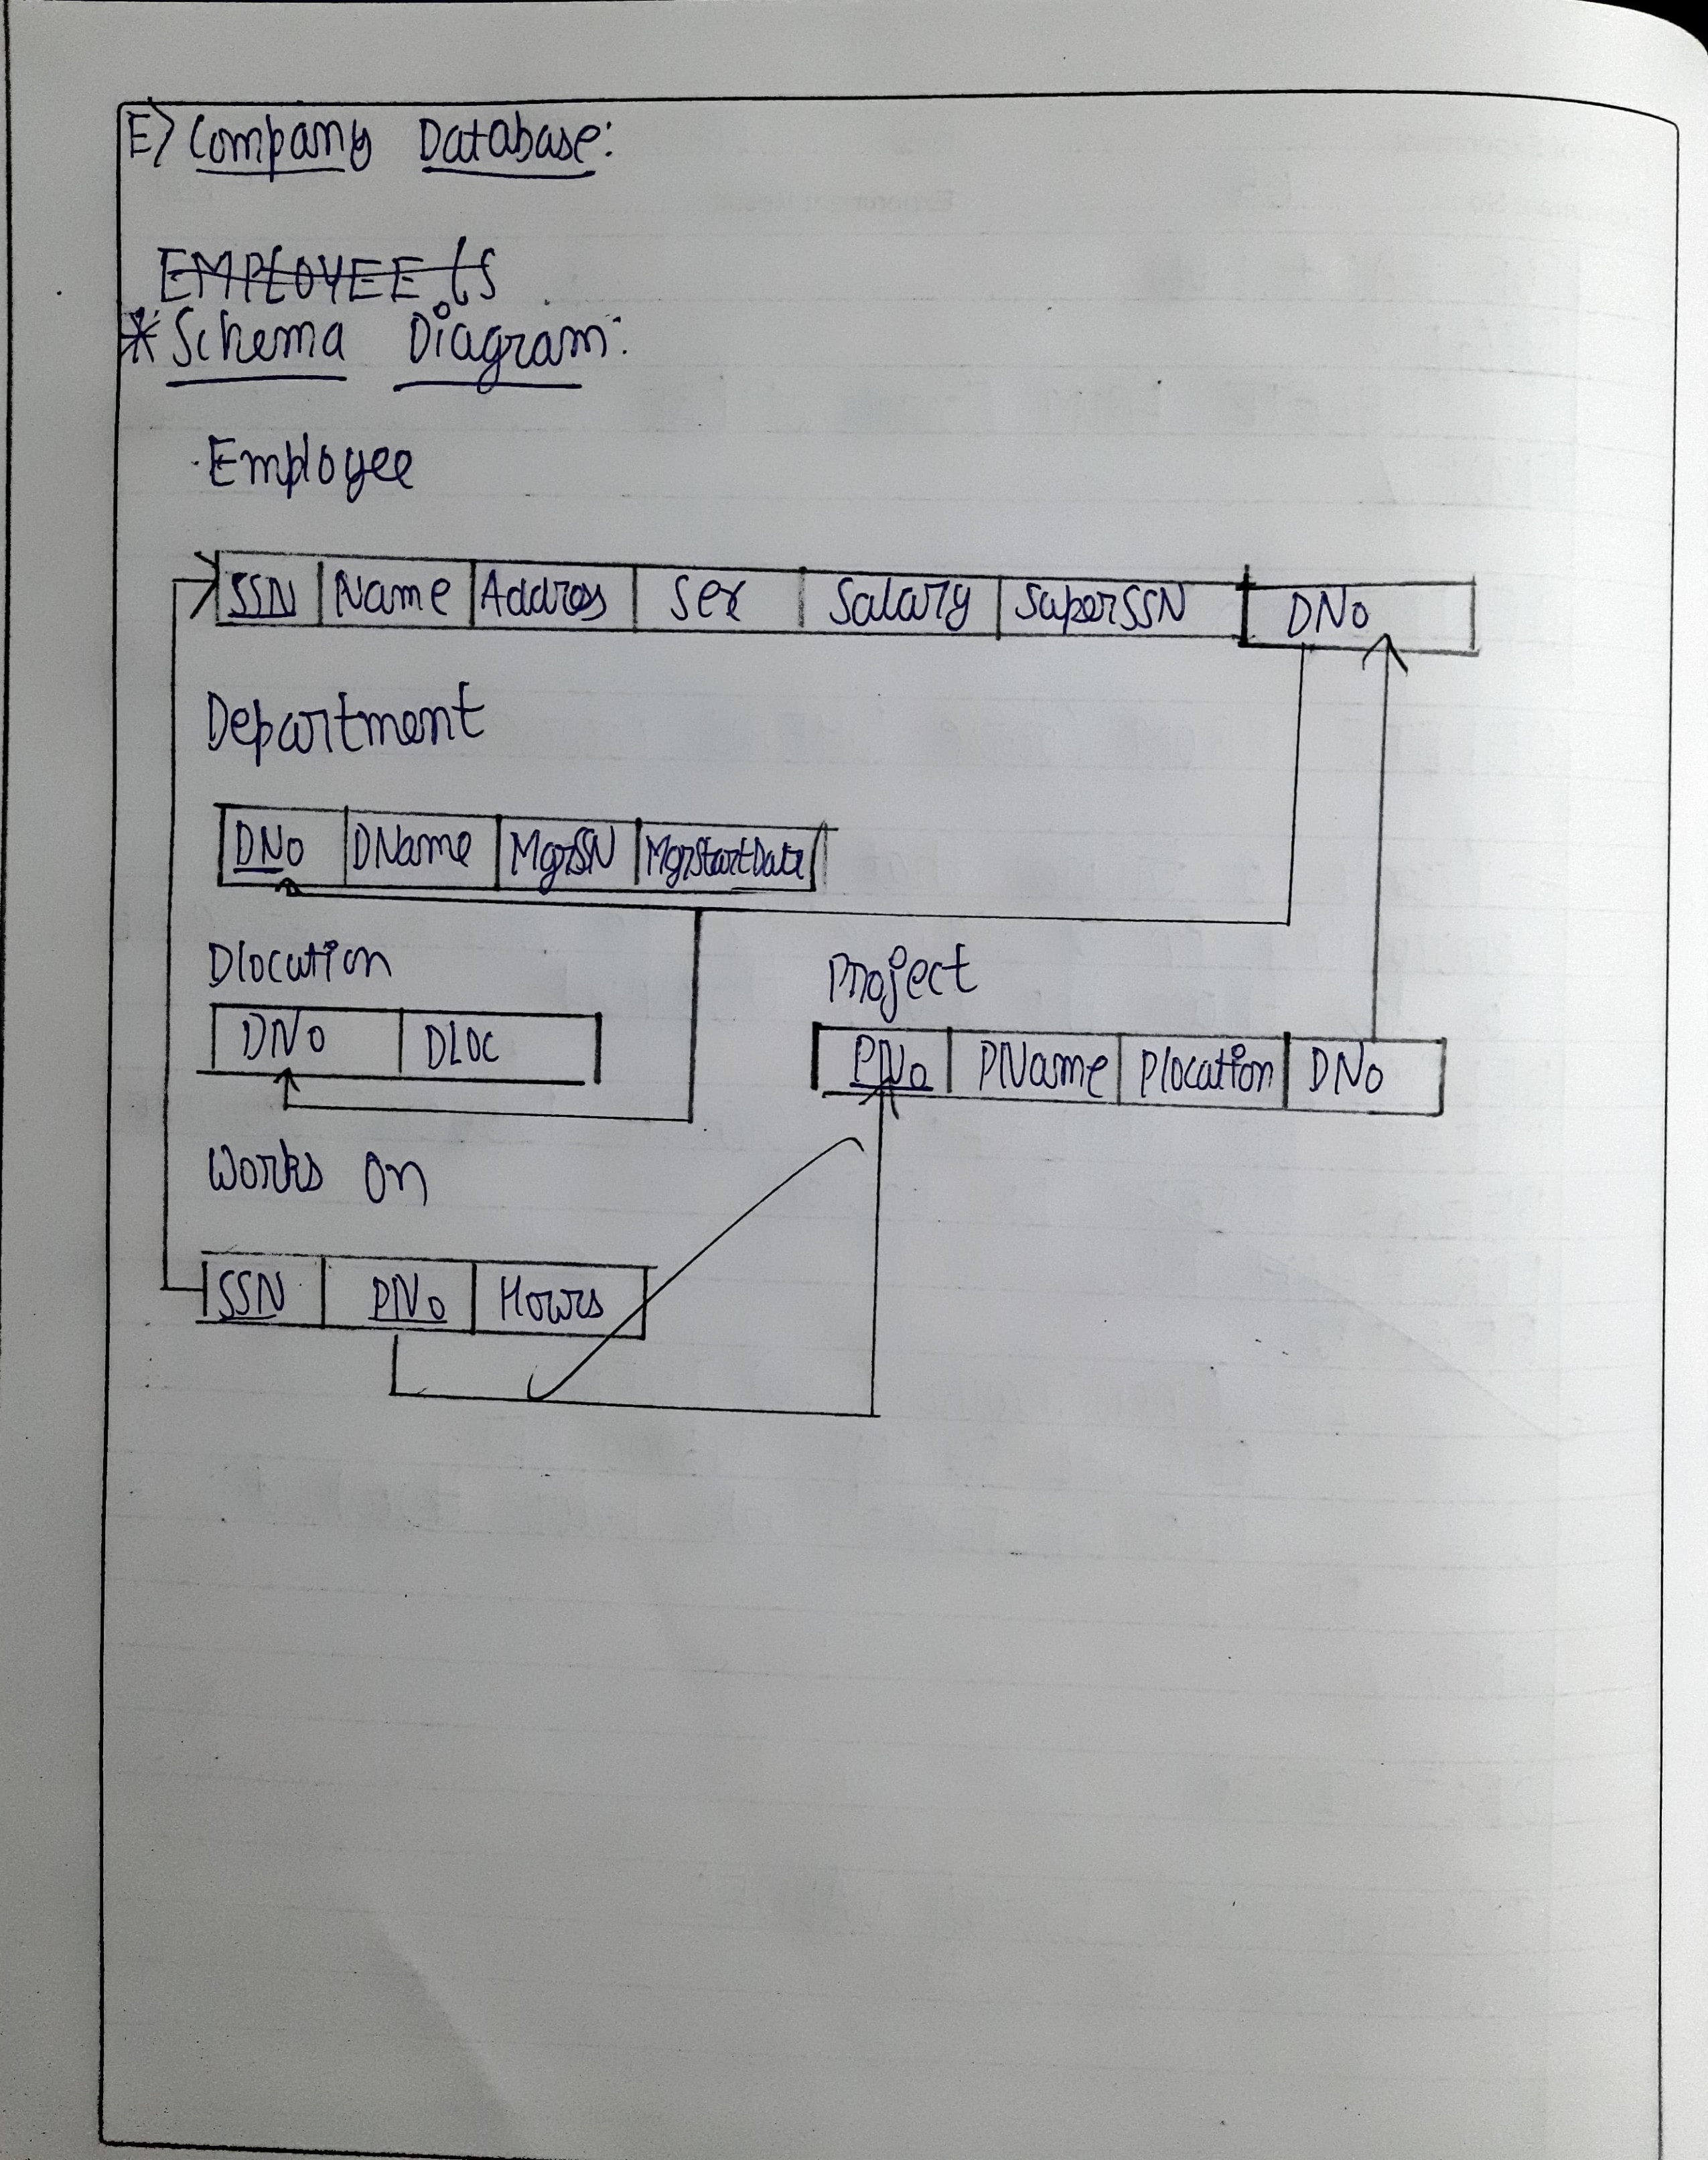 E) Company Database:
EMPLOYEE (S
* Schema Diagram:
Employee
SSN Name Address Sex Salary SuperSSN DNo
Department
DNo DName MgrSSN MgrStartDate
Dlocation
DNo DLOC
Project
PNo PName Plocation DNo
Works on
SSN PNo Hours